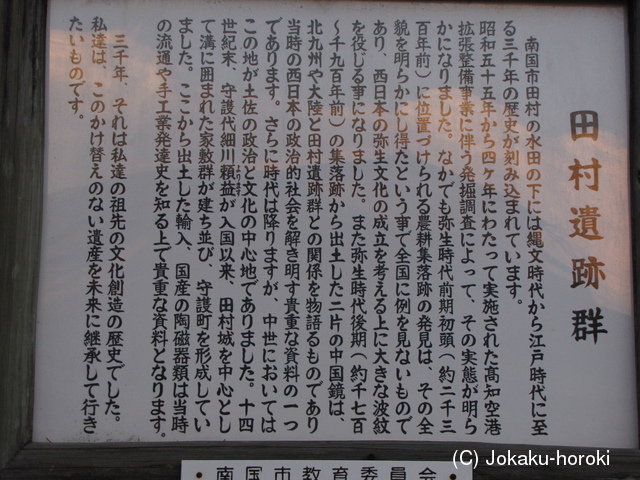 田村遺跡群
南国市田村の水田の下には縄文時代から江戸時代に至
る三千年の歴史が刻み込まれています。
昭和五十五年から四ヶ年にわたって実施された高知空港
拡張整備事業に伴う発掘調査によって、その実態が明ら
かになりました。なかでも弥生時代前期初頭(約二千三
百年前)に位置づけられる農耕集落跡の発見は、その全
貌を明らかにし得たという事で全国に例を見ないもので
あり、西日本の弥生文化の成立を考える上に大きな波紋
を役じる事になりました。また弥生時代後期(約千七百
〜千九百年前)の集落跡から出土した二片の中国鏡は、
北九州や大陸と田村遺跡群との関係を物語るものであり
当時の西日本の政治的社会を解き明す貴重な資料の一つ
であります。さらに時代は降りますが、中世においては
この地が土佐の政治と文化の中心地でありました。十四
世紀末、守護代細川頼益が入国以来、田村城を中心とし
て溝に囲まれた家敷群が建ち並び、守護町を形成してい
ました。ここから出土した輸入、国産の陶磁器類は当時
の流通や手工業発達史を知る上で貴重な資料となります。
三千年、それは私達の祖先の文化創造の歴史でした。
私達は、このかけ替えのない遺産を未来に継承して行き
たいものです。
南国市教育委員会
(C) Jokaku-horoki